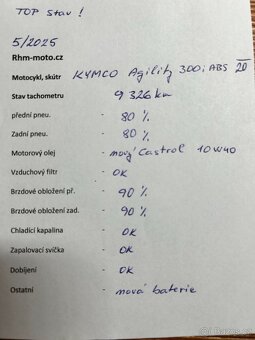 TOP stav !
5/2025
Rhm-moto.cz
Motocykl, skútr KYMCO Agility 300i ABS 20
Stav tachometru 9 326 km
přední pneu. - 80 %
Zadní pneu. - 80 %
Motorový olej - nový Castrol 10W40
Vzduchový filtr - OK
Brzdové obložení př. - 90 %
Brzdové obložení zad. - 90 %
Chladící kapalina - OK
Zapalovací svíčka - OK
Dobíjení - OK
Ostatní - nová baterie